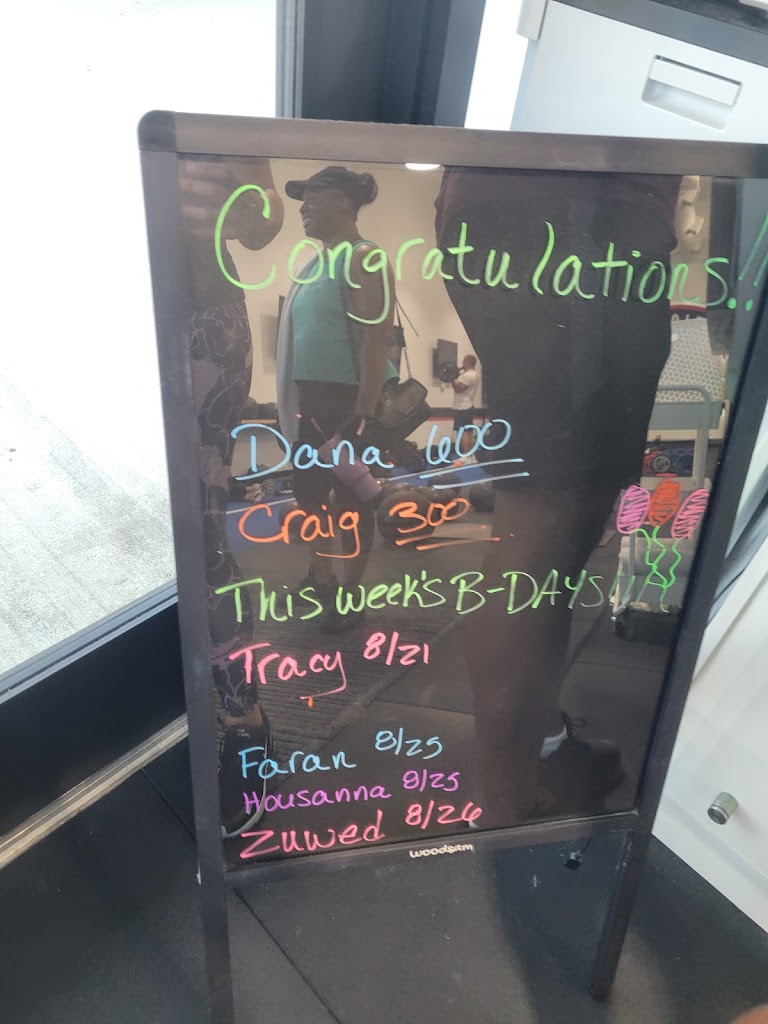 Congratulations!!
Dana 600
Craig 300
This week's B-DAYS
Tracy 8/21
Faran 8/25
Housanna 8/25
Zuwed 8/26
woodsam